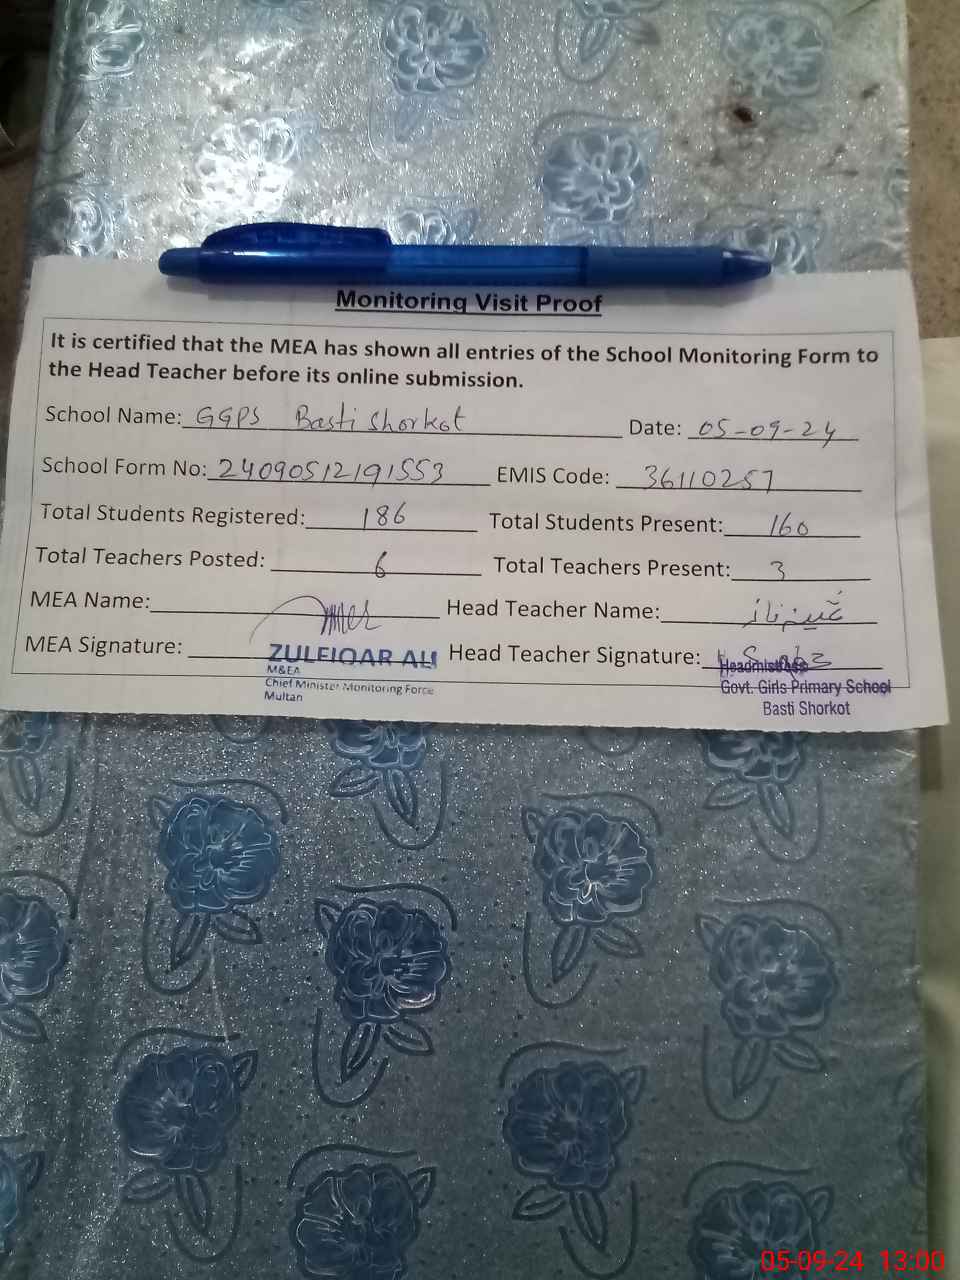 Monitoring Visit Proof
It is certified that the MEA has shown all entries of the School Monitoring Form to
the Head Teacher before its online submission.
School Name: GGPS Basti Shorkot Date: 05-09-24
School Form No: 24090512191553 EMIS Code: 36110257
Total Students Registered: 186 Total Students Present: 160
Total Teachers Posted: 6 Total Teachers Present: 3
MEA Name: Head Teacher Name:
MEA Signature: Head Teacher Signature:
ZULFIQAR ALI
M&EA
Chief Minister Monitoring Force
Multan
Headmistress
Govt. Girls Primary School
Basti Shorkot
05-09-24 13:00